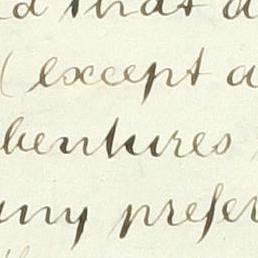 d that a
( except a
bentures
any prefer